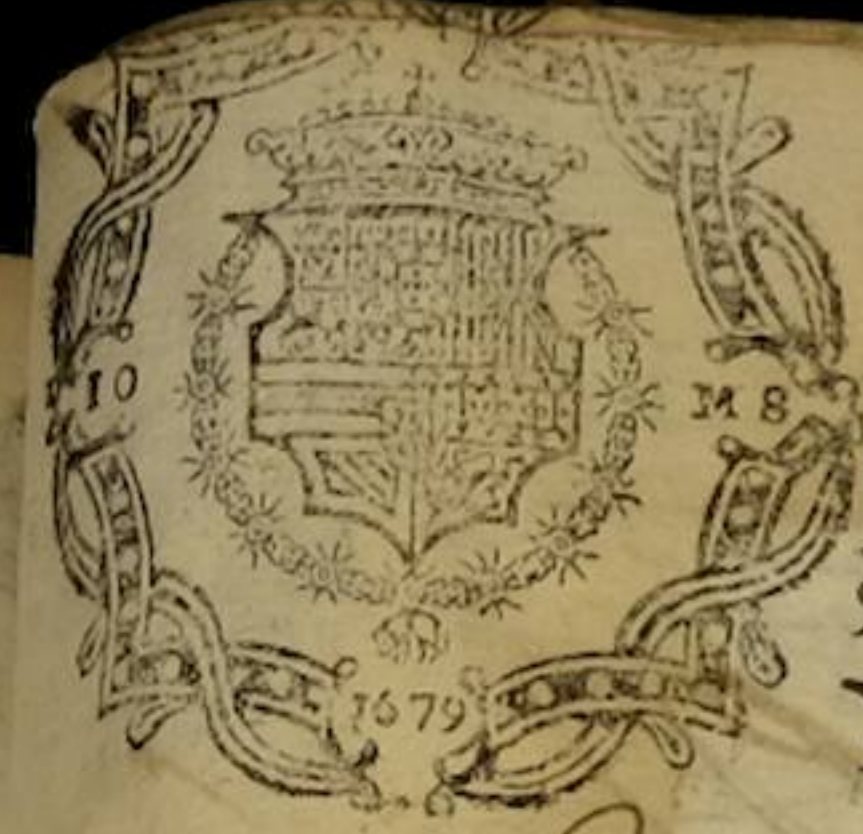 10 M8
1679